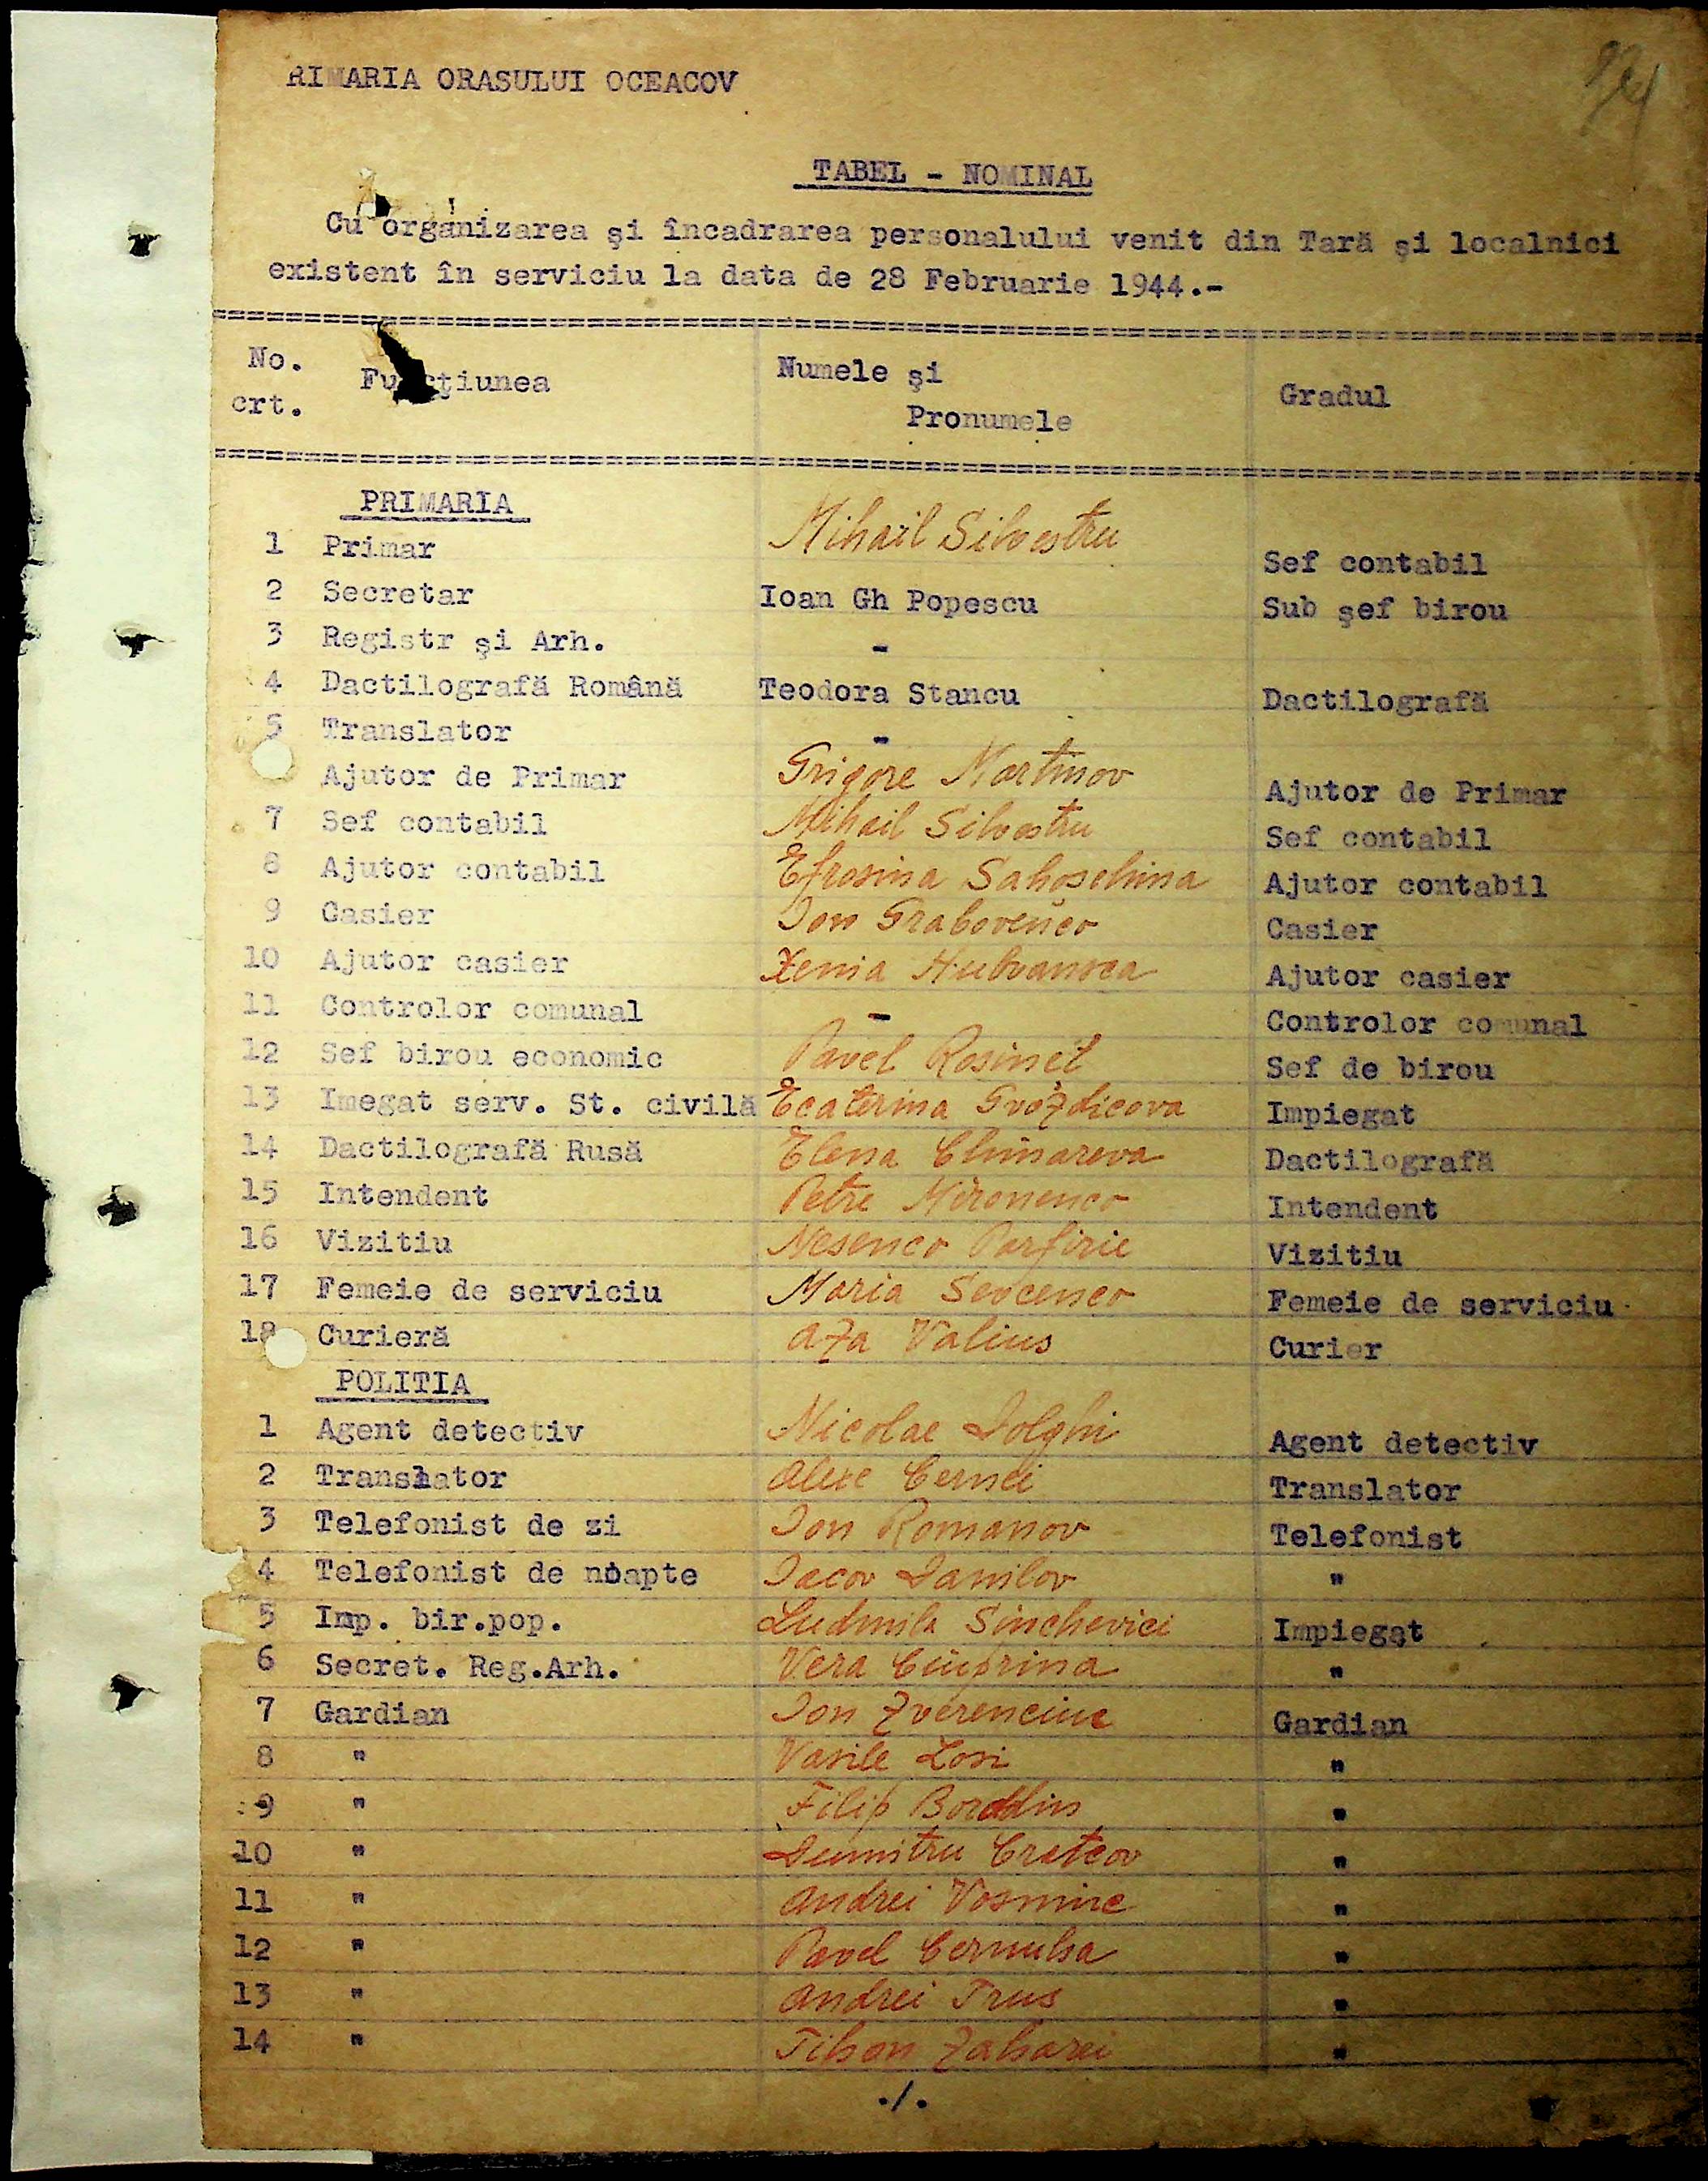 RIMARIA ORASULUI OCEACOV
TABEL - NOMINAL
Cu organizarea şi încadrarea personalului venit din Tară şi localnici
existent în serviciu la data de 28 Februarie 1944.-
No. crt. Funcţiunea Numele şi Pronumele Gradul
PRIMARIA
1 Primar Mihail Silvestru Sef contabil
2 Secretar Ioan Gh Popescu Sub şef birou
3 Registr şi Arh. -
4 Dactilografă Română Teodora Stancu Dactilografă
5 Translator -
Ajutor de Primar Grigore Martinov Ajutor de Primar
7 Sef contabil Mihail Silvestru Sef contabil
8 Ajutor contabil Efrosina Sahoschina Ajutor contabil
9 Casier Ion Grabovenco Casier
10 Ajutor casier Xenia Ajutor casier
11 Controlor comunal - Controlor comunal
12 Sef birou economic Pavel Rosinet Sef de birou
13 Imegat serv. St. civilă Ecaterina Gvozdicova Impiegat
14 Dactilografă Rusă Elena Dactilografă
15 Intendent Petre Mironenco Intendent
16 Vizitiu Nesenco Porfirie Vizitiu
17 Femeie de serviciu Maria Sevcenco Femeie de serviciu
18 Curieră Aza Valius Curier
POLITIA
1 Agent detectiv Nicolae Dolghi Agent detectiv
2 Translator Alexe Cernei Translator
3 Telefonist de zi Ion Romanov Telefonist
4 Telefonist de noapte Iacov Danilov "
5 Imp. bir.pop. Ludmila Sinchevici Impiegat
6 Secret. Reg.Arh. Vera Ciuprina "
7 Gardian Ion Zverenciuc Gardian
8 " Vasile Losi "
9 " Filip "
10 " Dumitru Cratcov "
11 " Andrei "
12 " Pavel "
13 " Andrei Trus "
14 " Tihon Zaharei "
./.